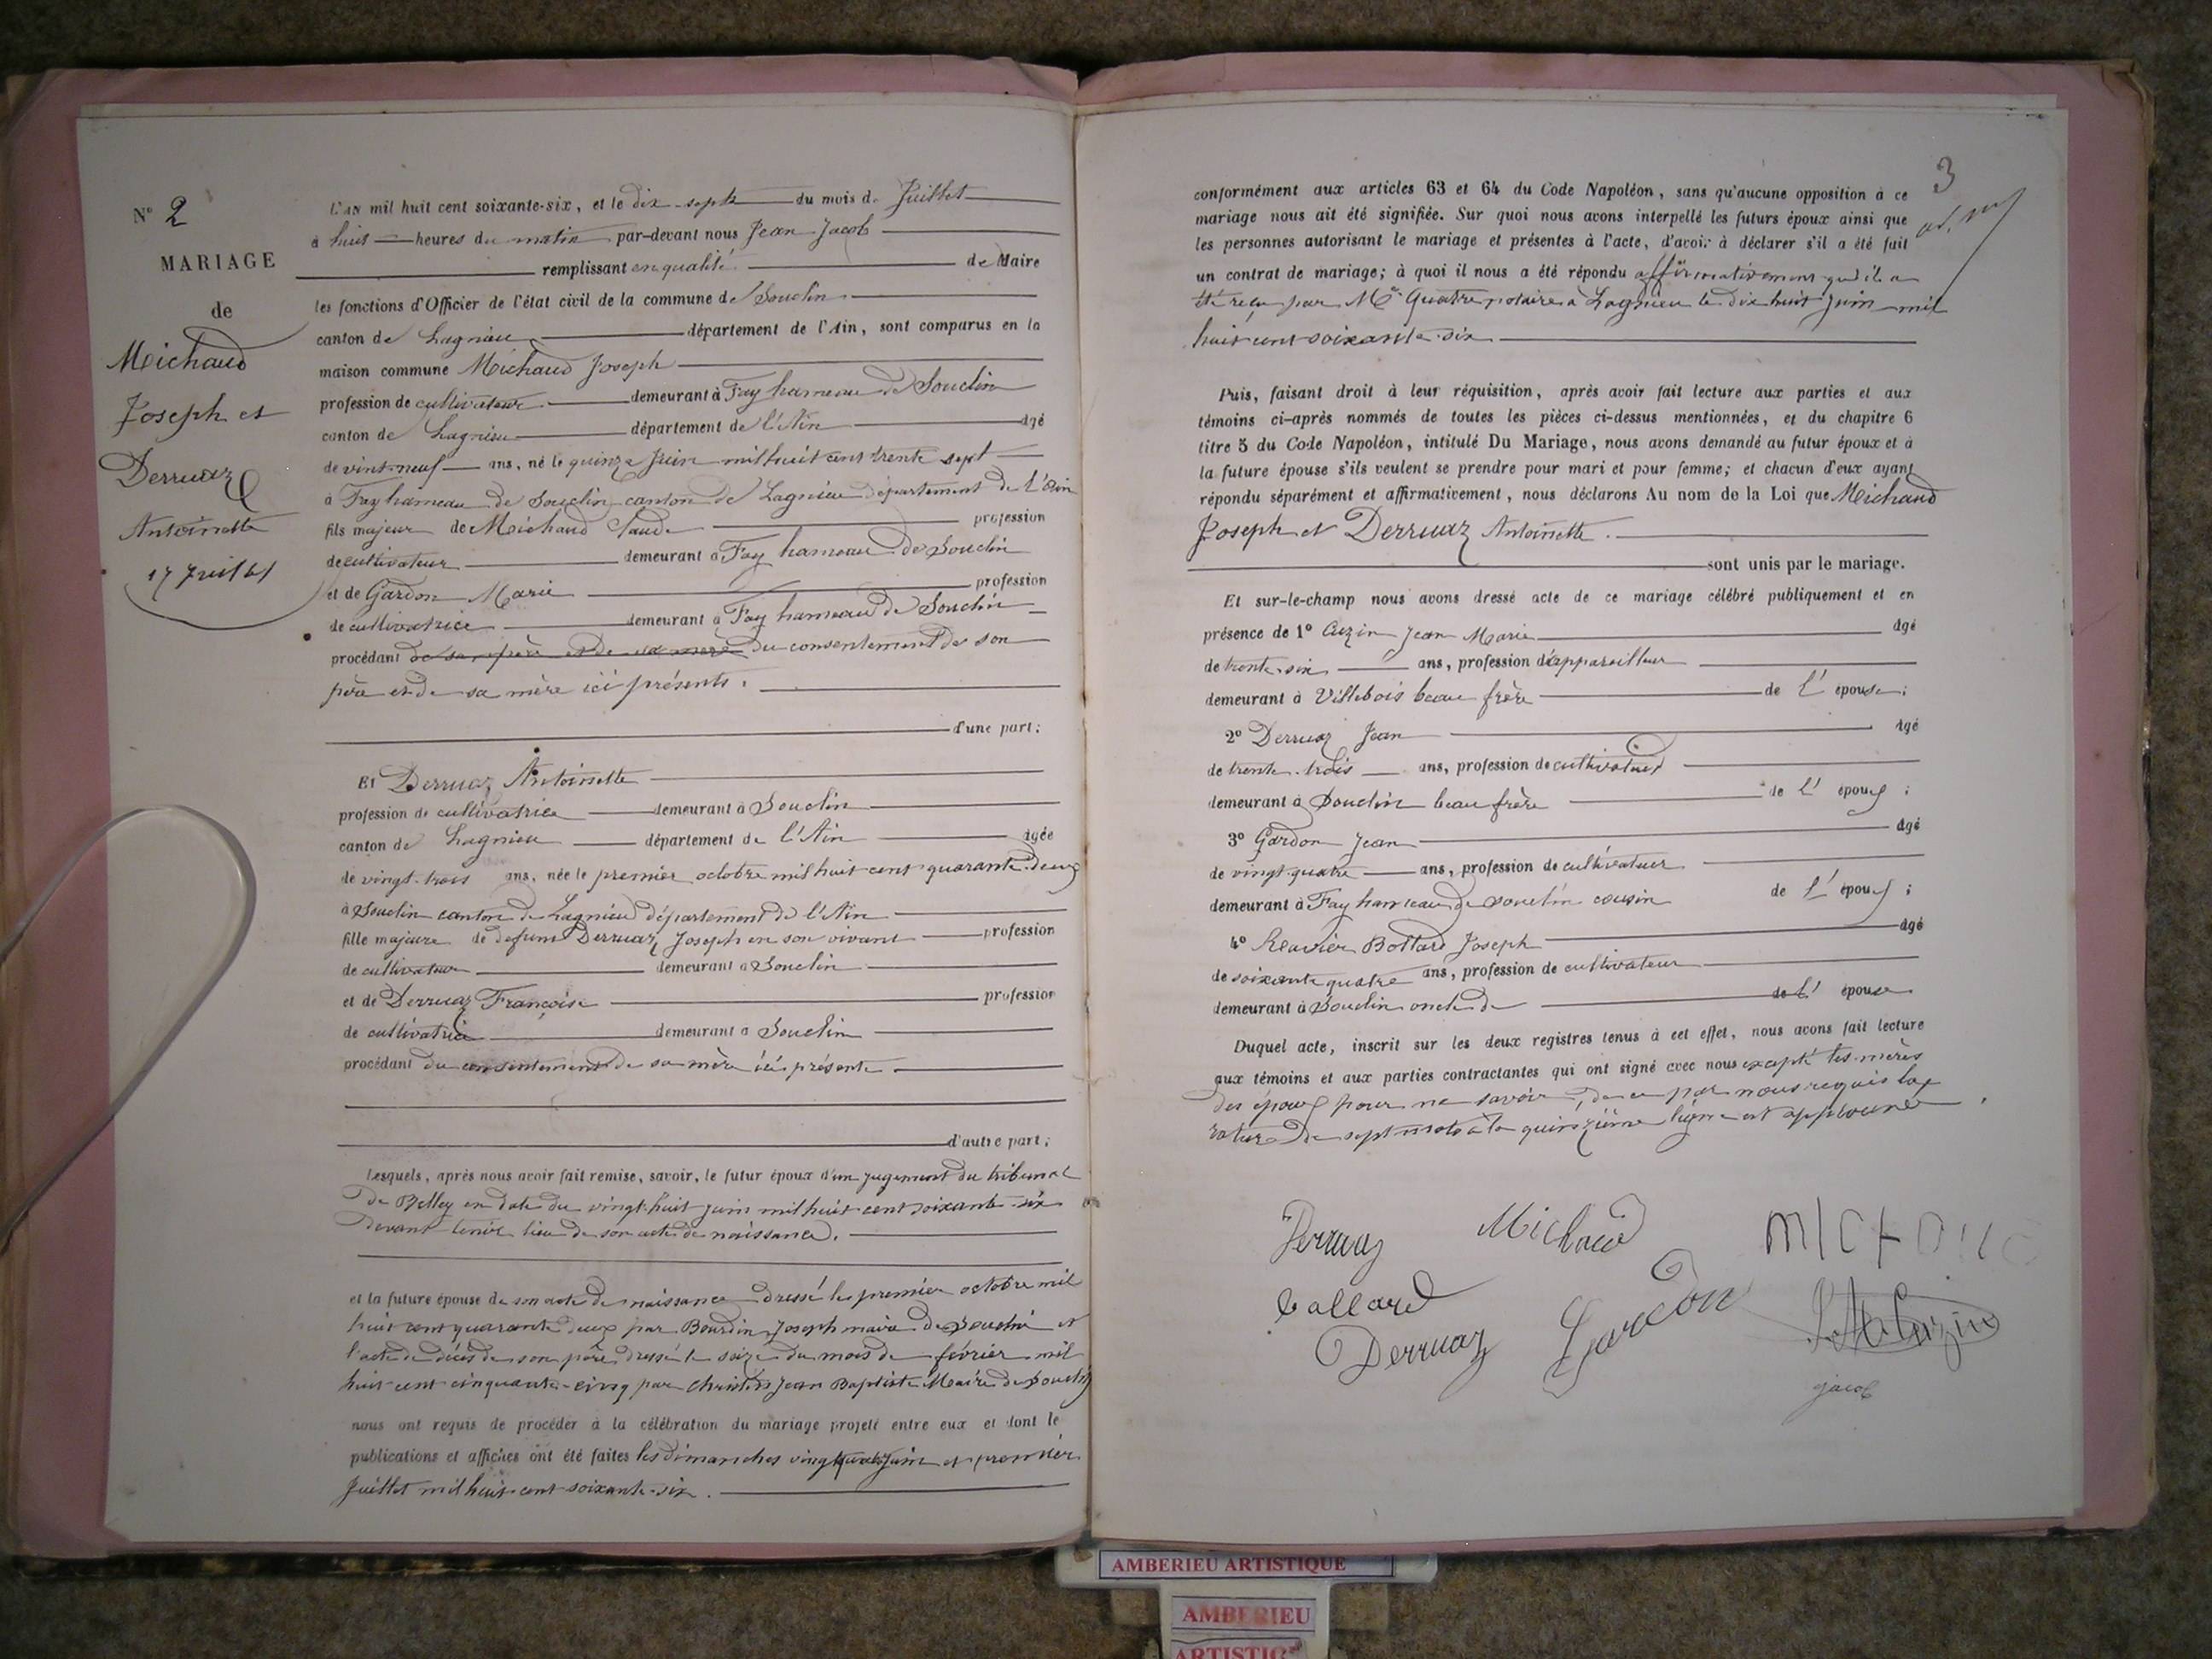 N° 2
MARIAGE
de
Michaud
Joseph et
Derruaz
Antoinette
17 Juillet
L'AN mil huit cent soixante-six, et le dix-sept du mois de Juillet
à huit heures du matin par-devant nous Jean Jacob
remplissant en qualité de Maire
les fonctions d'Officier de l'état civil de la commune de Souclin
canton de Lagnieu département de l'Ain, sont comparus en la
maison commune Michaud Joseph
profession de cultivateur demeurant à Fay hameau de Souclin
canton de Lagnieu département de l'Ain âgé
de vint-neuf ans, né le quinze Juin mil huit cent trente sept
à Fay hameau de Souclin canton de Lagnieu département de l'Ain
fils majeur de Michaud Claude profession
de cultivateur demeurant à Fay hameau de Souclin
et de Gardon Marie profession
de cultivatrice demeurant à Fay hameau de Souclin
procédant de son père et de sa mère du consentement de son
père et de sa mère ici présents.
d'une part;
Et Derruaz Antoinette
profession de cultivatrice demeurant à Souclin
canton de Lagnieu département de l'Ain âgée
de vingt-trois ans, née le premier octobre mil huit cent quarante-deux
à Souclin canton de Lagnieu département de l'Ain
fille majeure de defunt Derruaz Joseph en son vivant profession
de cultivateur demeurant à Souclin
et de Derruaz Françoise profession
de cultivatrice demeurant à Souclin
procédant du consentement de sa mère ici présente
d'autre part;
Lesquels, après nous avoir fait remise, savoir, le futur époux d'un jugement du tribunal
de Belley en date du vingt-huit juin mil huit cent soixante-six
devant tenir lieu de son acte de naissance.
et la future épouse de son acte de naissance dressé le premier octobre mil
huit cent quarante deux par Bourdin Joseph maire de Souclin et
l'acte de décès de son père dressé le seize du mois de février mil
huit cent cinquante-cinq par Christin Jean Baptiste Maire de Souclin
nous ont requis de procéder à la célébration du mariage projeté entre eux et dont le
publications et affiches ont été faites les dimanches vingt quatre juin et premier
Juillet mil huit cent soixante-six.
3
conformément aux articles 63 et 64 du Code Napoléon, sans qu'aucune opposition à ce
mariage nous ait été signifiée. Sur quoi nous avons interpellé les futurs époux ainsi que
les personnes autorisant le mariage et présentes à l'acte, d'avoir à déclarer s'il a été fait
un contrat de mariage; à quoi il nous a été répondu affirmativement qu'il a
été reçu par Me Quatre notaire à Lagnieu le dix huit juin mil
huit cent soixante-six
Puis, faisant droit à leur réquisition, après avoir fait lecture aux parties et aux
témoins ci-après nommés de toutes les pièces ci-dessus mentionnées, et du chapitre 6
titre 5 du Code Napoléon, intitulé Du Mariage, nous avons demandé au futur époux et à
la future épouse s'ils veulent se prendre pour mari et pour femme; et chacun d'eux ayant
répondu séparément et affirmativement, nous déclarons Au nom de la Loi que Michaud
Joseph et Derruaz Antoinette.
sont unis par le mariage.
Et sur-le-champ nous avons dressé acte de ce mariage célébré publiquement et en
présence de 1° Cuzin Jean Marie âgé
de trente-six ans, profession d'appareilleur
demeurant à Villebois beau frère de l'épouse;
2° Derruaz Jean âgé
de trente-trois ans, profession de cultivateur
demeurant à Souclin beau frère de l'époux;
3° Gardon Jean âgé
de vingt-quatre ans, profession de cultivateur
demeurant à Fay hameau de souclin cousin de l'époux;
4° Bottard Joseph âgé
de soixante quatre ans, profession de cultivateur
demeurant à Souclin oncle de de l'épouse
Duquel acte, inscrit sur les deux registres tenus à cet effet, nous avons fait lecture
aux témoins et aux parties contractantes qui ont signé avec nous excepté les mères
des époux pour ne savoir, de ce par nous requis la
rature de sept mots à la quinzième ligne est approuvée
Derruaz Michaud
Gardon
Derruaz
J M Cuzin
jacob
AMBERIEU ARTISTIQUE
AMBERIEU